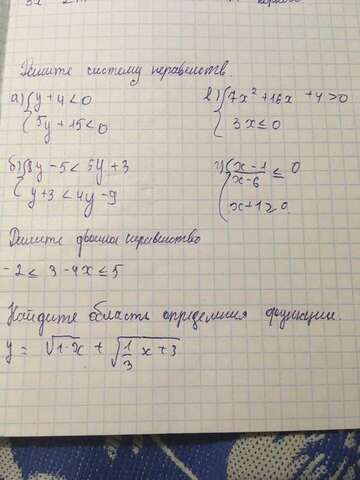 Решите систему неравенств.
а) { y + 4 < 0
5y + 15 < 0
в) { 7x² + 16x + 4 > 0
3x ≤ 0
б) { 8y - 5 < 5y + 3
y + 3 < 4y - 9
г) { (x - 1)/(x - 6) ≤ 0
x + 1 ≥ 0
Решите двойное неравенство
-2 ≤ 3 - 4x ≤ 5
Найдите область определения функции.
y = √(1-x) + √(1/3 x + 3)